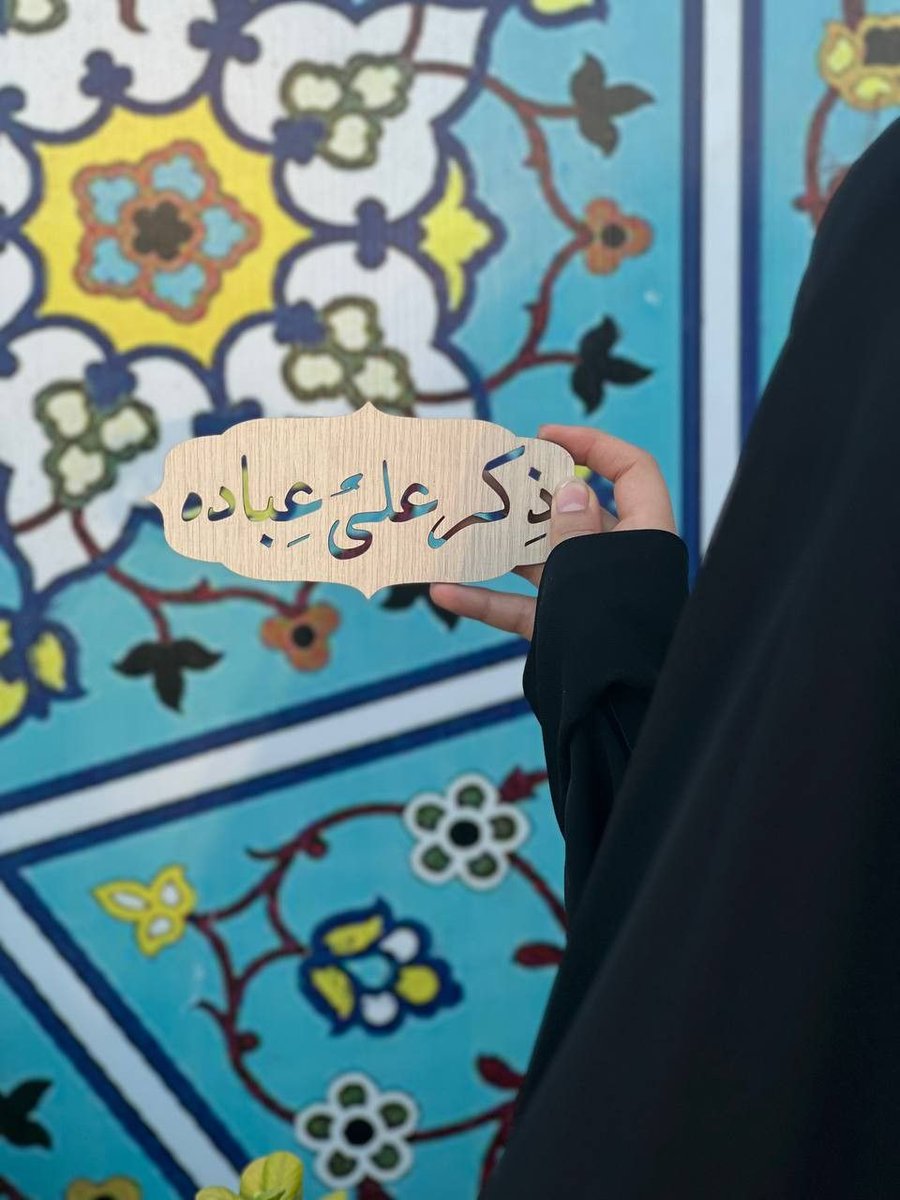 ذِكر علیُ عِباده